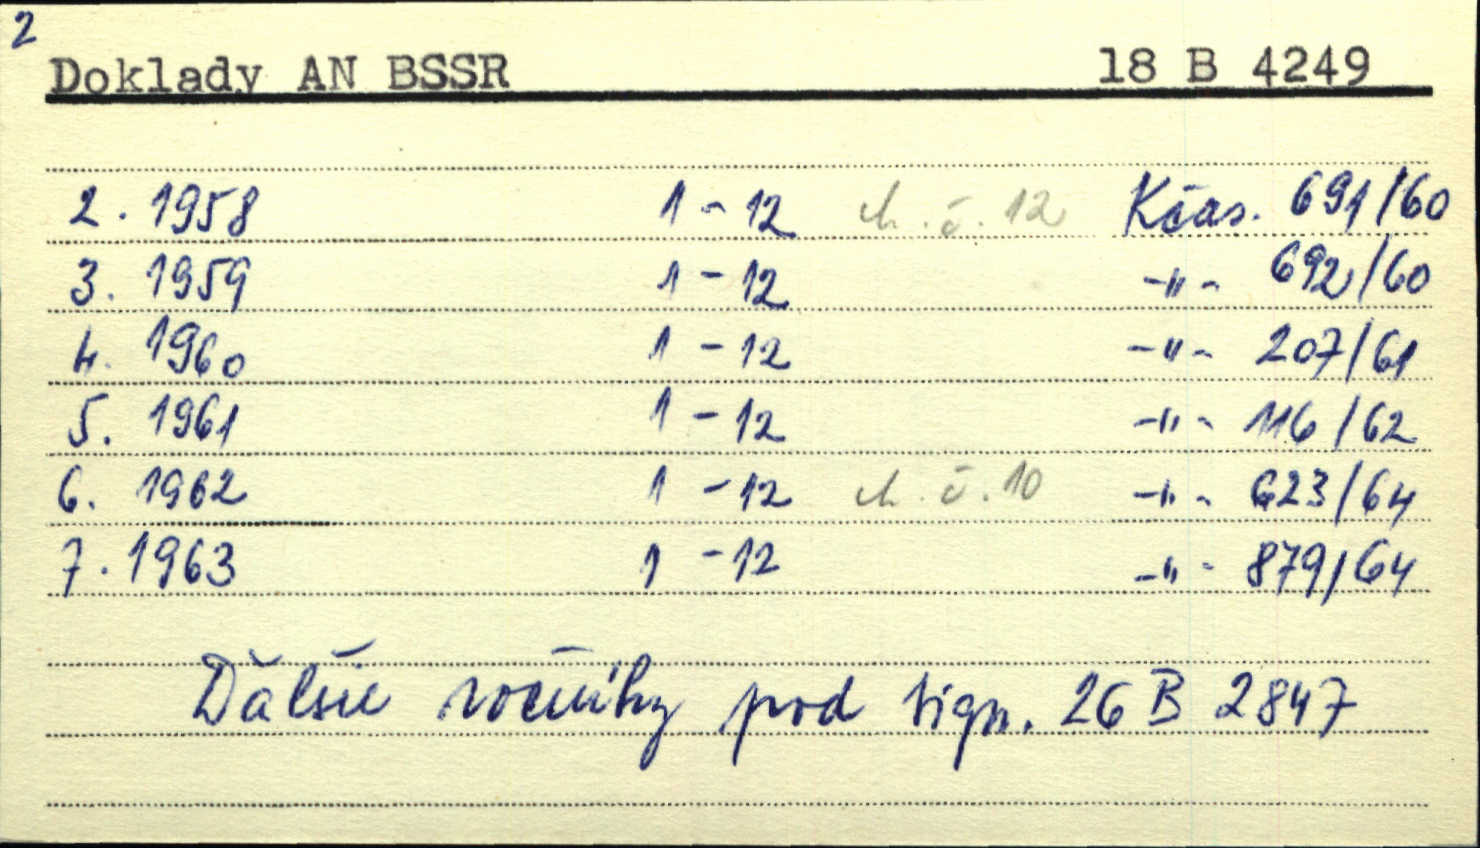 2
Doklady AN BSSR 18 B 4249
2. 1958 1-12 ch. č. 12 Kčas. 691/60
3. 1959 1-12 -"- 692/60
4. 1960 1-12 -"- 207/61
5. 1961 1-12 -"- 116/62
6. 1962 1-12 ch. č. 10 -"- 623/64
7. 1963 1-12 -"- 879/64
Ďalšie ročníky pod sign. 26 B 2847